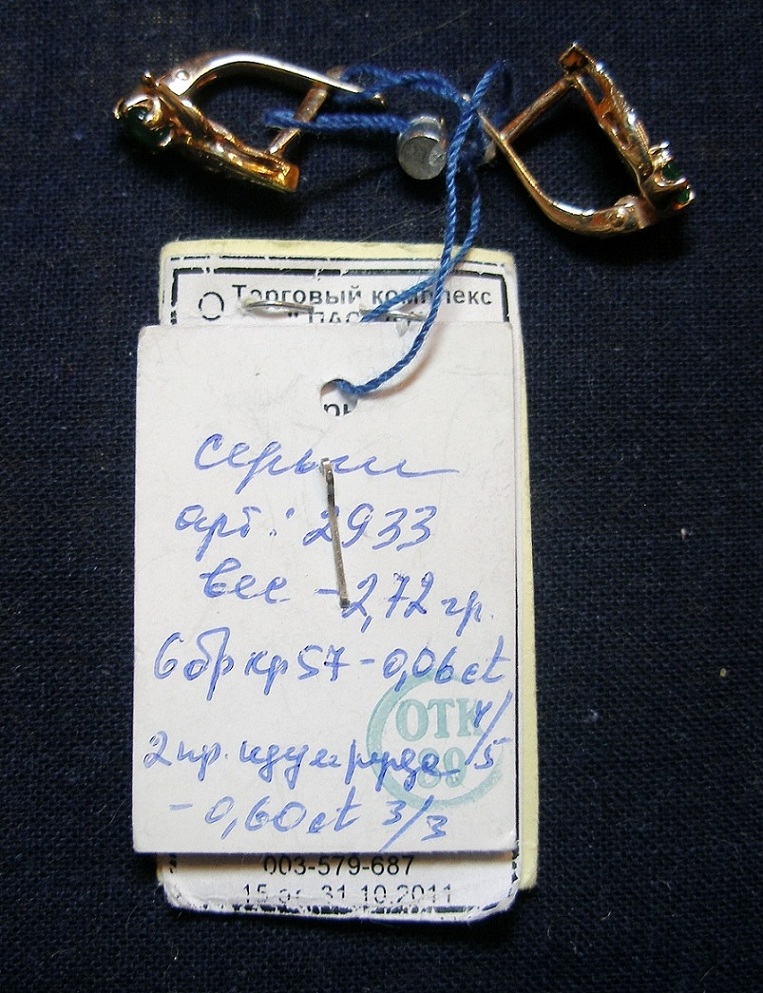 Торговый комплекс
серьги
арт: 2933
вес - 2,72 гр.
6 бр кр 57 - 0,06 ct
4/5
2 пр. изумруда
- 0,60 ct 3/3
ОТК
89
003-579-687
15 от 31.10.2011